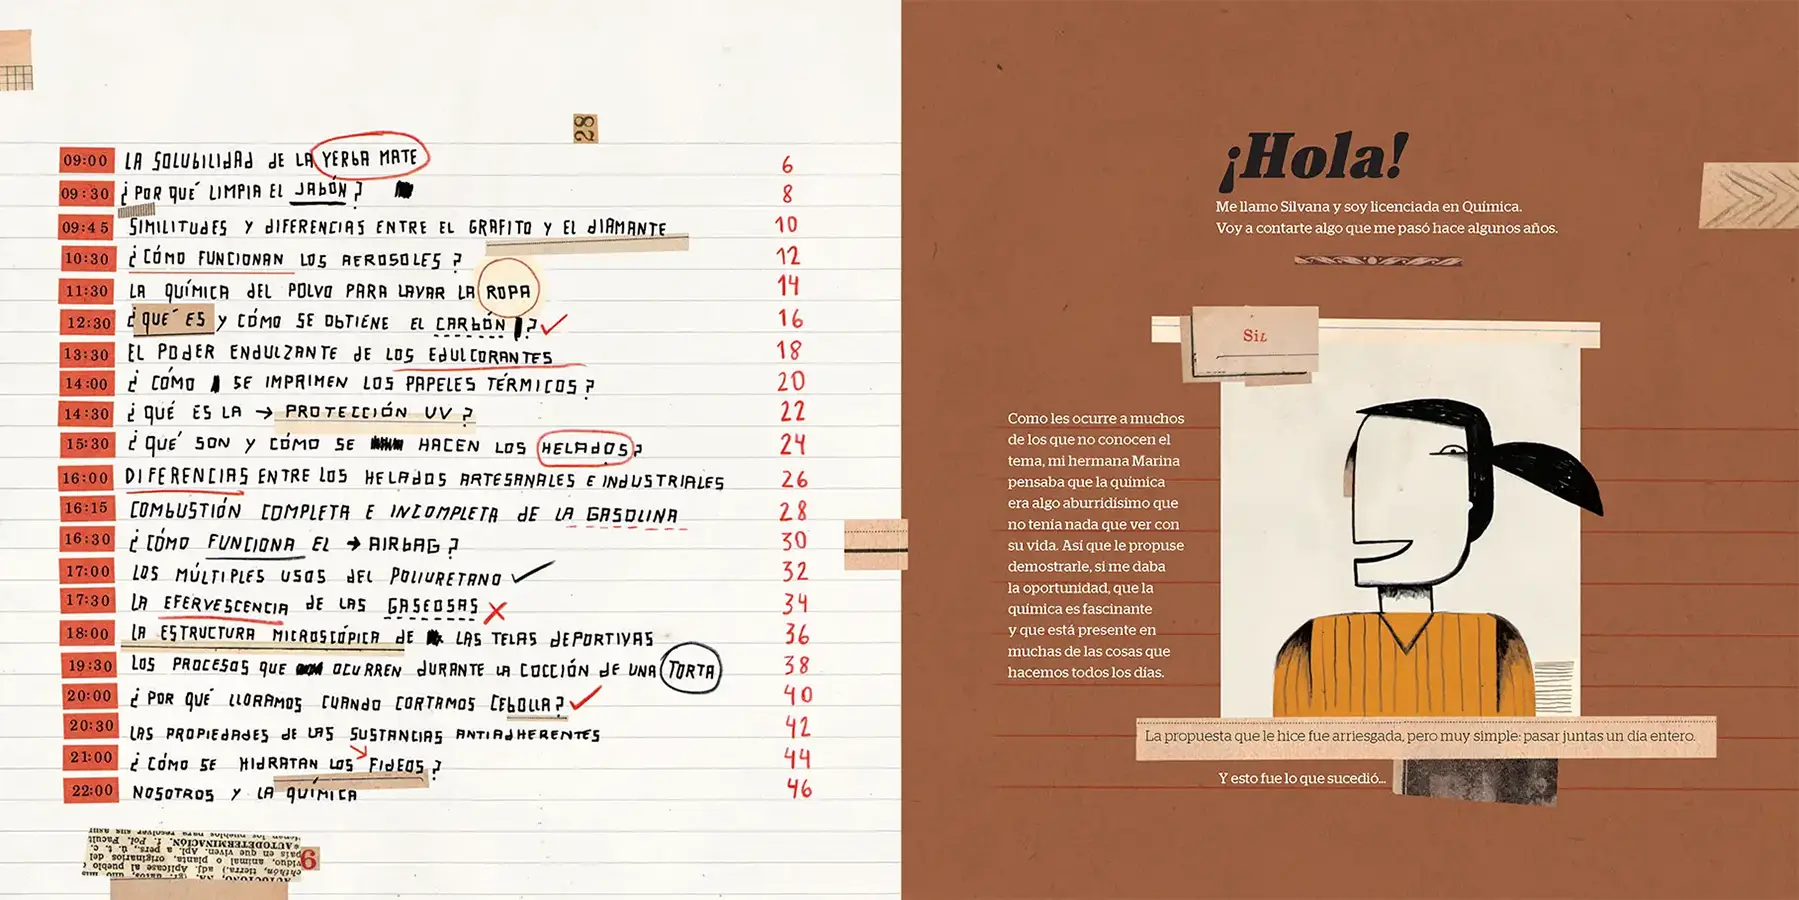 28
09:00 LA SOLUBILIDAD DE LA YERBA MATE 6
09:30 ¿POR QUÉ LIMPIA EL JABÓN? 8
09:45 SIMILITUDES Y DIFERENCIAS ENTRE EL GRAFITO Y EL DIAMANTE 10
10:30 ¿CÓMO FUNCIONAN LOS AEROSOLES? 12
11:30 LA QUÍMICA DEL POLVO PARA LAVAR LA ROPA 14
12:30 ¿QUÉ ES Y CÓMO SE OBTIENE EL CARBÓN? 16
13:30 EL PODER ENDULZANTE DE LOS EDULCORANTES 18
14:00 ¿CÓMO SE IMPRIMEN LOS PAPELES TÉRMICOS? 20
14:30 ¿QUÉ ES LA → PROTECCIÓN UV? 22
15:30 ¿QUÉ SON Y CÓMO SE HACEN LOS HELADOS? 24
16:00 DIFERENCIAS ENTRE LOS HELADOS ARTESANALES E INDUSTRIALES 26
16:15 COMBUSTIÓN COMPLETA E INCOMPLETA DE LA GASOLINA 28
16:30 ¿CÓMO FUNCIONA EL → AIRBAG? 30
17:00 LOS MÚLTIPLES USOS DEL POLIURETANO 32
17:30 LA EFERVESCENCIA DE LAS GASEOSAS 34
18:00 LA ESTRUCTURA MICROSCÓPICA DE LAS TELAS DEPORTIVAS 36
19:30 LOS PROCESOS QUE OCURREN DURANTE LA COCCIÓN DE UNA TORTA 38
20:00 ¿POR QUÉ LLORAMOS CUANDO CORTAMOS CEBOLLA? 40
20:30 LAS PROPIEDADES DE LAS SUSTANCIAS ANTIADHERENTES 42
21:00 ¿CÓMO SE HIDRATAN LOS FIDEOS? 44
22:00 NOSOTROS Y LA QUÍMICA 46
¡Hola!
Me llamo Silvana y soy licenciada en Química.
Voy a contarte algo que me pasó hace algunos años.
Sil
Como les ocurre a muchos
de los que no conocen el
tema, mi hermana Marina
pensaba que la química
era algo aburridísimo que
no tenía nada que ver con
su vida. Así que le propuse
demostrarle, si me daba
la oportunidad, que la
química es fascinante
y que está presente en
muchas de las cosas que
hacemos todos los días.
La propuesta que le hice fue arriesgada, pero muy simple: pasar juntas un día entero.
Y esto fue lo que sucedió...